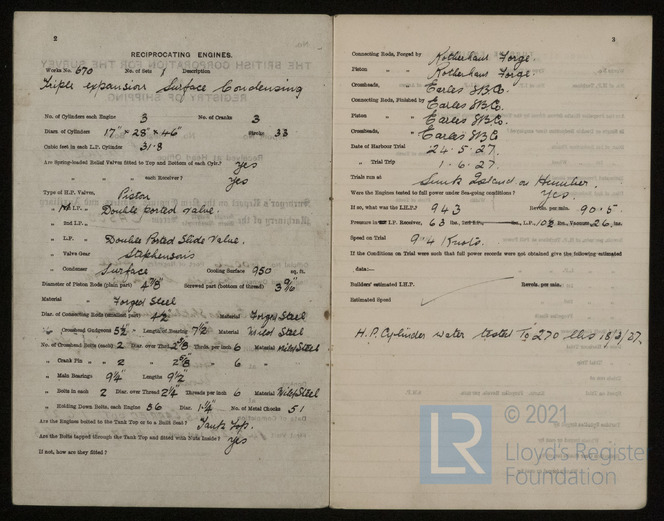 2
RECIPROCATING ENGINES.
Works No. 670 No. of Sets 1 Description
Triple expansion Surface Condensing
No. of Cylinders each Engine 3 No. of Cranks 3
Diam. of Cylinders 17" × 28" × 46" Stroke 33
Cubic feet in each L.P. Cylinder 31.8
Are Spring-loaded Relief Valves fitted to Top and Bottom of each Cylr.? yes
" " " each Receiver? yes
Type of H.P. Valves, Piston
" 1st I.P. " Double ported valve.
" 2nd I.P. "
" L.P. " Double Ported Slide Valve.
" Valve Gear Stephensons
" Condenser Surface Cooling Surface 950 sq. ft.
Diameter of Piston Rods (plain part) 4 7/8 Screwed part (bottom of thread)
Material Forged Steel
Diar. of Connecting Rods (smallest part) 4 1/2 Material Forged Steel
" Crosshead Gudgeons 5 1/2 Length of Bearing 7 1/2 Material Mild Steel
No. of Crosshead Bolts (each) 2 Diar. over Thrd. 2 5/8 Thrds. per inch 6 Material Mild Steel
" Crank Pin " " 2 " 2 5/8 " 6 "
" Main Bearings 9 1/4" Lengths 9 1/2"
" Bolts in each 2 Diar. over Thread 2 1/4 Threads per inch 6 Material Mild Steel
" Holding Down Bolts, each Engine 36 Diar. 1 1/4" No. of Metal Chocks 51
Are the Engines bolted to the Tank Top or to a Built Seat? Tank Top.
Are the Bolts tapped through the Tank Top and fitted with Nuts Inside? yes
If not, how are they fitted?
3
Connecting Rods, Forged by Rotherham Forge.
Piston " " Rotherham Forge.
Crossheads, " Earles SB Co.
Connecting Rods, Finished by Earles SB Co.
Piston " " Earles SB Co.
Crossheads, " Earles SB Co
Date of Harbour Trial 24.5.27.
" Trial Trip 1.6.27.
Trials run at Sunk Island on Humber.
Were the Engines tested to full power under Sea-going conditions? Yes.
If so, what was the I.H.P.? 943 Revols. per min. 90.5.
Pressure in 1st I.P. Receiver, 63 lbs., 2nd I.P., lbs., L.P., 10 1/2 lbs., Vacuum 26 ins.
Speed on Trial 9.4 Knots.
If the Conditions on Trial were such that full power records were not obtained give the following estimated
data:—
Builders' estimated I.H.P. Revols. per min.
Estimated Speed
H.P. Cylinder water tested To 270 lbs 15/3/27.
© 2021
LR
Lloyd's Register
Foundation